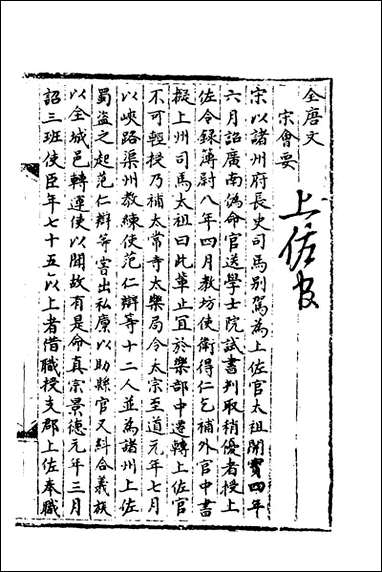 全唐文
宋會要
上佐官
宋以諸州府長史司馬別駕為上佐官太祖開寶四年
六月詔廣南偽命官送學士院試書判取稍優者授上
佐令錄簿尉八年四月教坊使衛得仁乞補外官中書
擬上州司馬太祖曰此輩止宜於樂部中遷轉上佐官
不可輕授乃補太常寺太樂局令太宗至道元年七月
以峽路渠州教練使范仁辯等十二人並為諸州上佐
蜀盜之起范仁辯等害出私廩以助縣官又糾合義族
以全城邑轉運使以聞故有是命真宗景德元年三月
詔三班使臣年七十五以上者借職授支郡上佐奉職